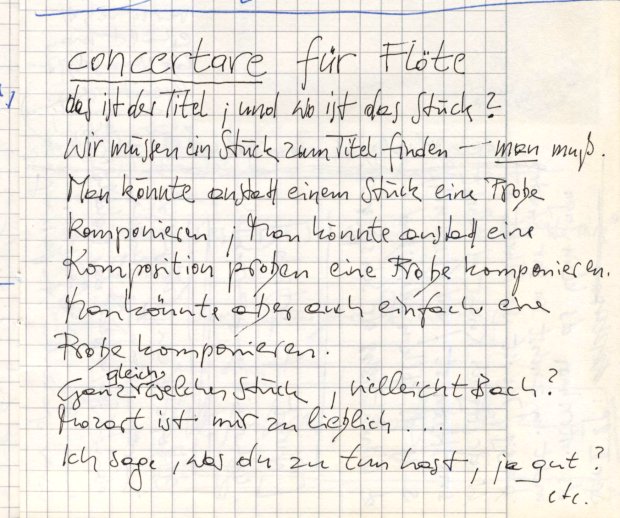 concertare für Flöte
das ist der Titel ; und wo ist das Stück?
Wir müssen ein Stück zum Titel finden — man muß.
Man könnte anstatt einem Stück eine Probe
komponieren ; Man könnte anstatt eine
Komposition proben eine Probe komponieren.
Man könnte aber auch einfach eine
Probe komponieren.
gleich
Ganz welches Stück, vielleicht Bach?
Mozart ist mir zu lieblich...
Ich sage, was du zu tun hast, ja gut?
etc.